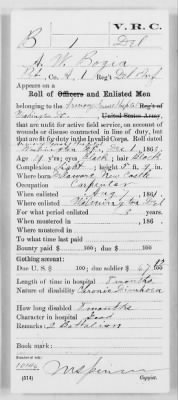 V. R. C.
B 1 Del
A. W. Bogia
Pvt, Co. A, 1 Reg't Del Inf
Appears on a
Roll of Officers and Enlisted Men
belonging to the Armory Square Hospital Reg't of
Washington D.C. United States Army,
that are unfit for active field service, on account of
wounds or disease contracted in line of duty, but
that are fit for duty in the Invalid Corps. Roll dated
Washington D.C., Dec 1, 1863.
Age 19 y'rs; eyes Black; hair Black
Complexion Light; height 5 ft. 9 in.
Where born Delaware New Castle
Occupation Carpenter
When enlisted Aug , 1861.
Where enlisted Wilmington Del
For what period enlisted 3 years.
When mustered in , 186 .
Where mustered in
To what time last paid
Bounty paid $ 100; due $ 100
Clothing account:
Due U. S. $ 100; due soldier $ 67
Length of time in hospital 8 months
Nature of disability Chronic Diarrhoea
How long disabled 8 months
Character in hospital Good
Remarks: 2 Battalion
Book mark:
(314) Copyist.